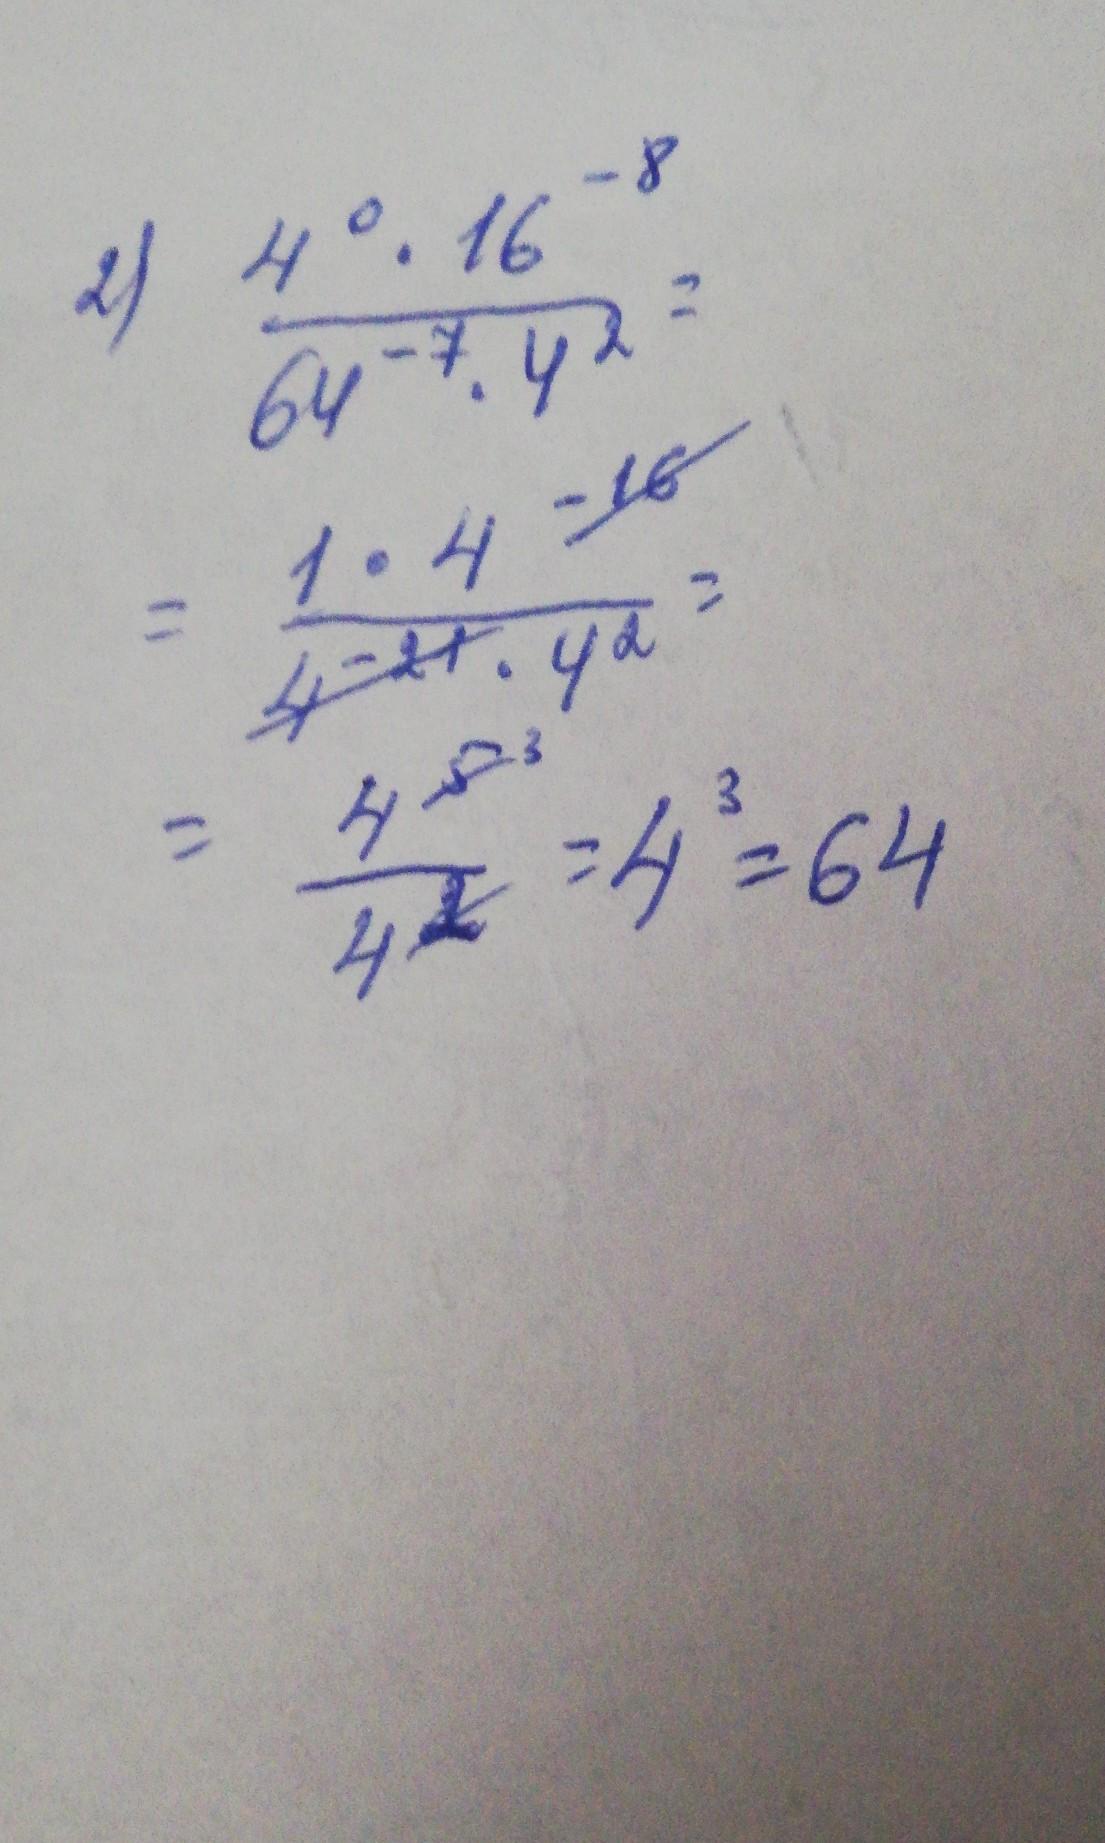 2) 4⁰ · 16⁻⁸ =
64⁻⁷ · 4²
= 1 · 4⁻¹⁶ =
4⁻²¹ · 4²
= 4⁵ ³ = 4³ = 64
4²